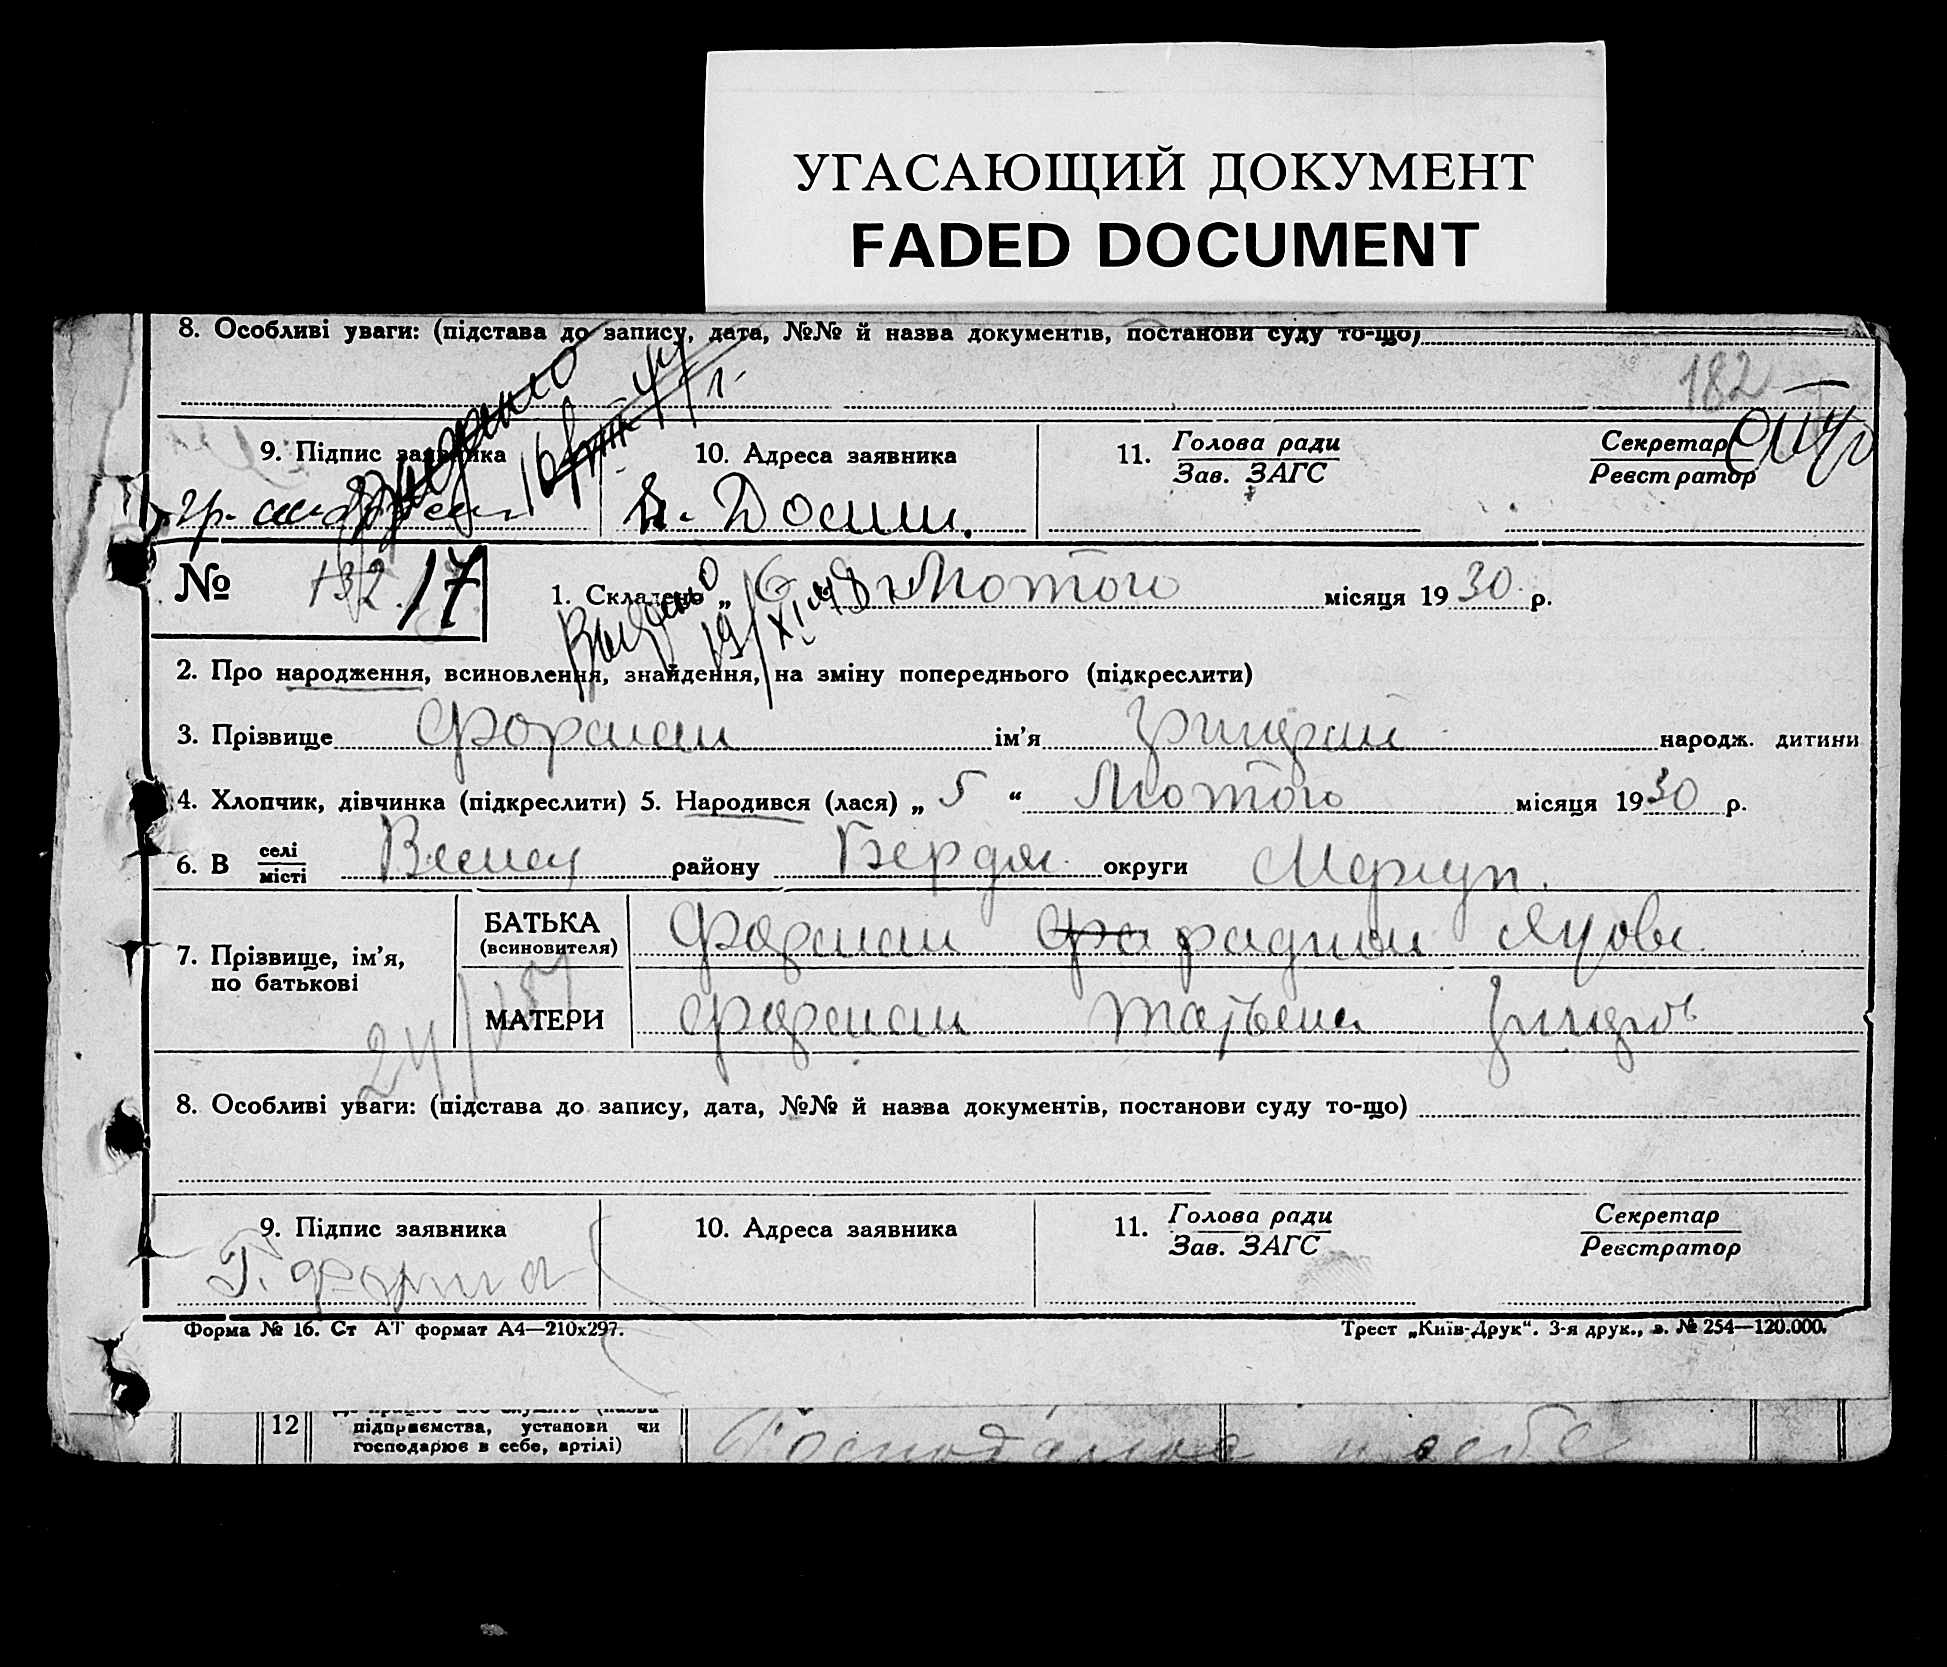 УГАСАЮЩИЙ ДОКУМЕНТ
FADED DOCUMENT
8. Особливі уваги: (підстава до запису, дата, №№ й назва документів, постанови суду то-що)
182
9. Підпис заявника 10. Адреса заявника 11. Голова ради Секретар
Зав. ЗАГС Реєстратор
гр.
№ 132. 17 1. Складено „ 6 Лютого місяця 19 30 р.
Выдано 19/XI
2. Про народження, всиновлення, знайдення, на зміну попереднього (підкреслити)
3. Прізвище Форман ім'я народж. дитини
4. Хлопчик, дівчинка (підкреслити) 5. Народився (лася) „ 5 “ Лютого місяця 19 30 р.
6. В селі району Бердян. округи Маріуп.
місті
БАТЬКА Форман
(всиновителя)
7. Прізвище, ім'я,
по батькові
МАТЕРИ Форман Татьяна
8. Особливі уваги: (підстава до запису, дата, №№ й назва документів, постанови суду то-що)
9. Підпис заявника 10. Адреса заявника 11. Голова ради Секретар
Зав. ЗАГС Реєстратор
Г. Форман
Форма № 16. Ст АТ формат А4—210х297. Трест „Київ-Друк“. 3-я друк., з. № 254—120.000.
12 підприємства, установи чи
господарює в себе, артілі)